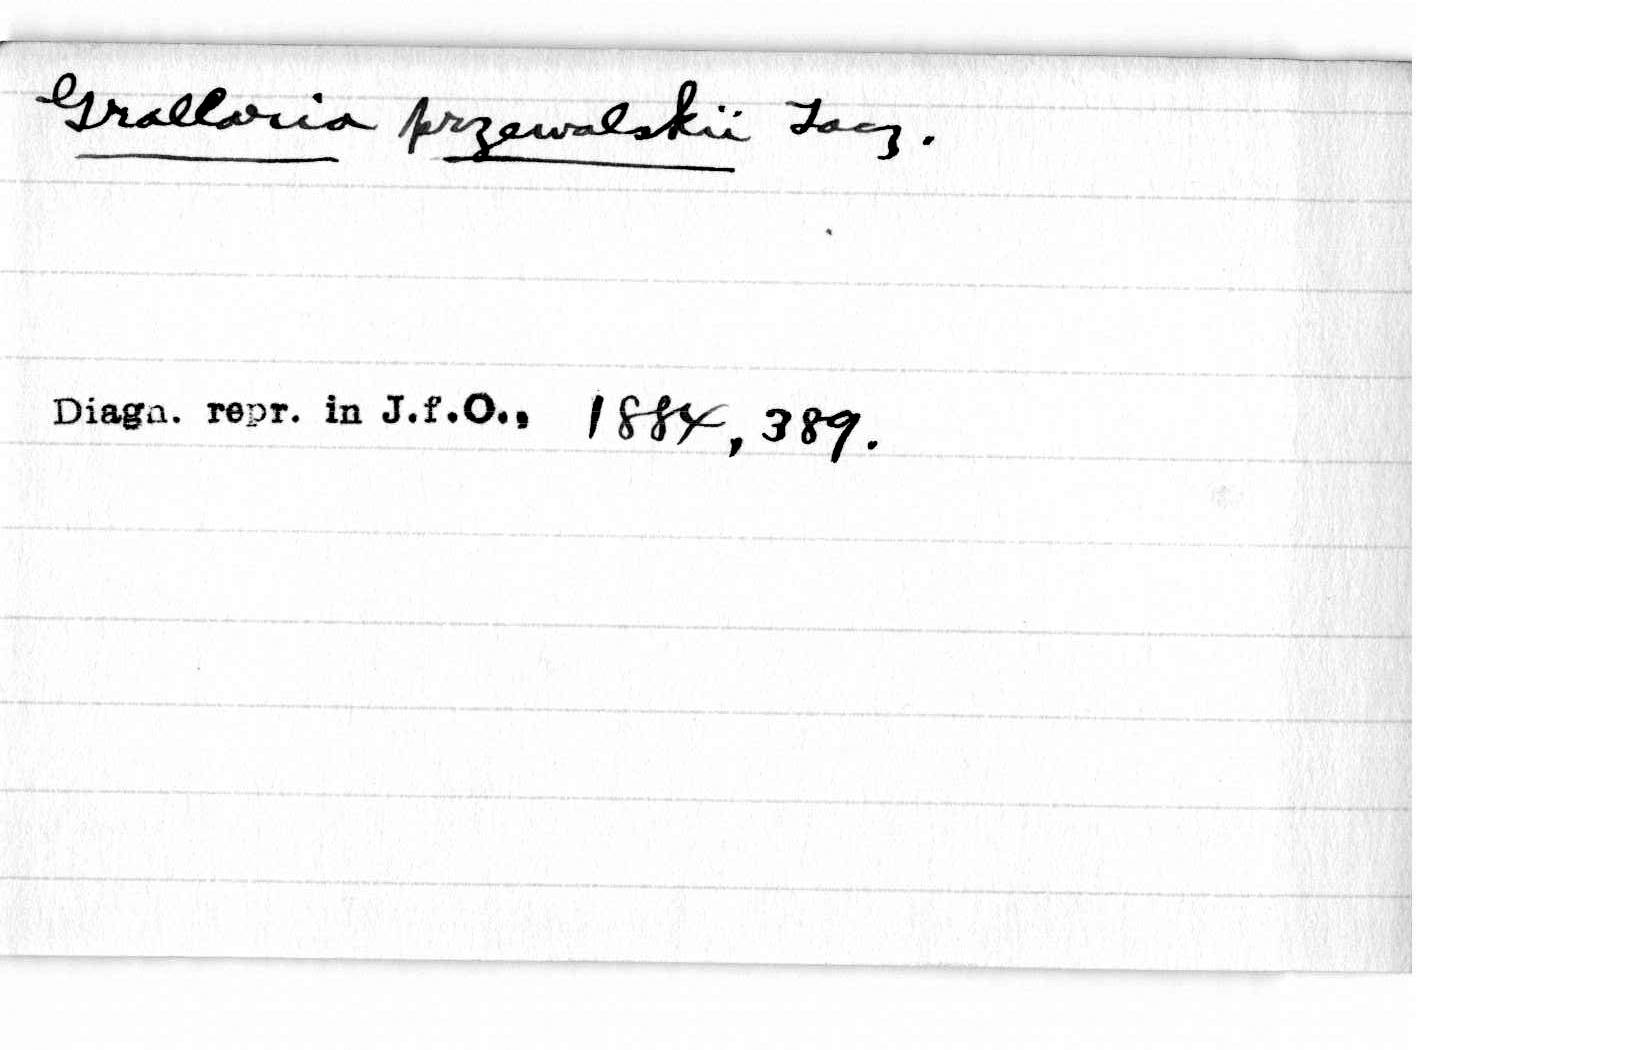 Grallaria przewalskii Tacz.
Diagn. repr. in J.f.O., 1884, 389.